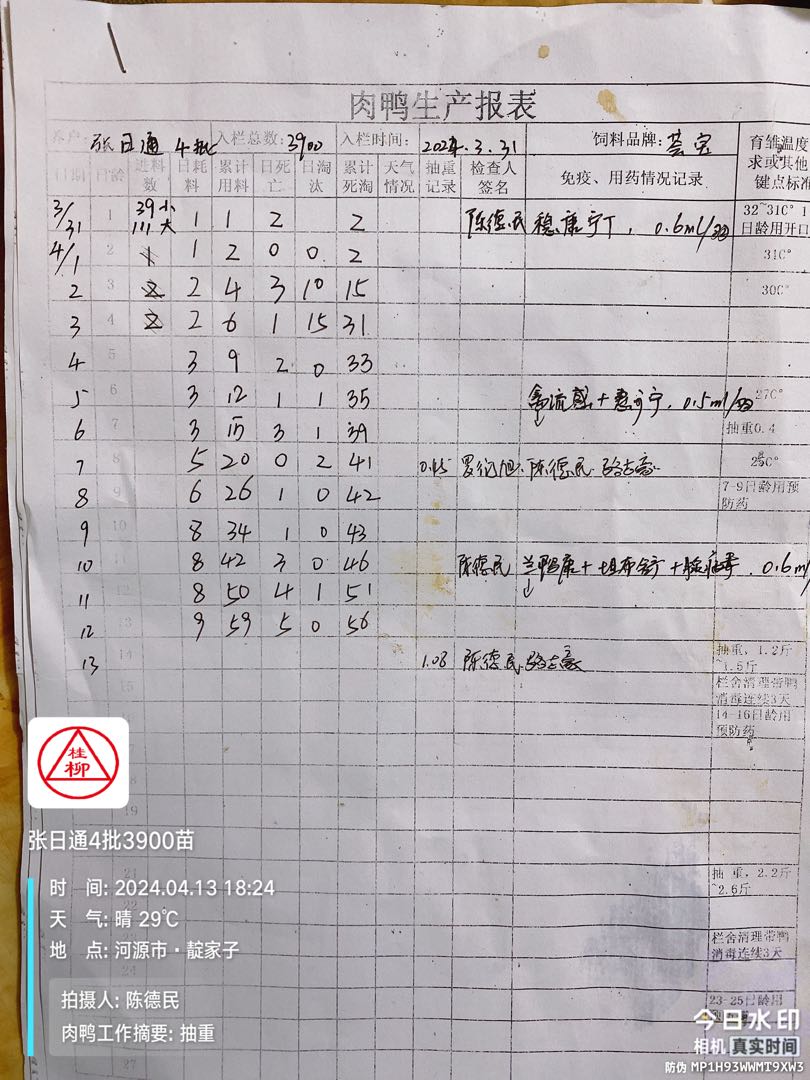 肉鸭生产报表
养户: 张日通 4批 入栏总数: 3900 入栏时间: 2024.3.31 饲料品牌: 育雏温度
求或其他
键点标准
日期 日龄 进料数 日耗料 累计用料 日死亡 日淘汰 累计死淘 天气情况 抽重记录 检查人签名 免疫、用药情况记录
3/31 1 39小 111大 1 1 2 2 陈德民 稳康宁丁, 0.6ml/羽 32~31C° 1日龄用开口
4/1 2 1 2 0 0 2 31C°
2 3 2 4 3 10 15 30C°
3 4 2 6 1 15 31
4 5 3 9 2 0 33
5 6 3 12 1 1 35 禽流感+ 0.5ml/羽 27C°
6 7 3 15 3 1 39 抽重0.4
7 8 5 20 0 2 41 0.45 陈德民 C°
8 9 6 26 1 0 42 7-9日龄用预防药
9 10 8 34 1 0 43
10 11 8 42 3 0 46 陈德民 0.6m
11 12 8 50 4 1 51
12 13 9 59 5 0 56
13 14 1.08 陈德民 抽重, 1.2斤~1.5斤
15 栏舍清理带鸭消毒连续3天
14-16日龄用预防药
19
21 抽 重, 2.2斤~2.6斤
栏舍清理带鸭消毒连续3天
24
23-25日龄用
27
桂柳
张日通4批3900苗
时 间: 2024.04.13 18:24
天 气: 晴 29℃
地 点: 河源市·靛家子
拍摄人: 陈德民
肉鸭工作摘要: 抽重
今日水印
相机 真实时间
防伪 MP1H93WWMT9XW3